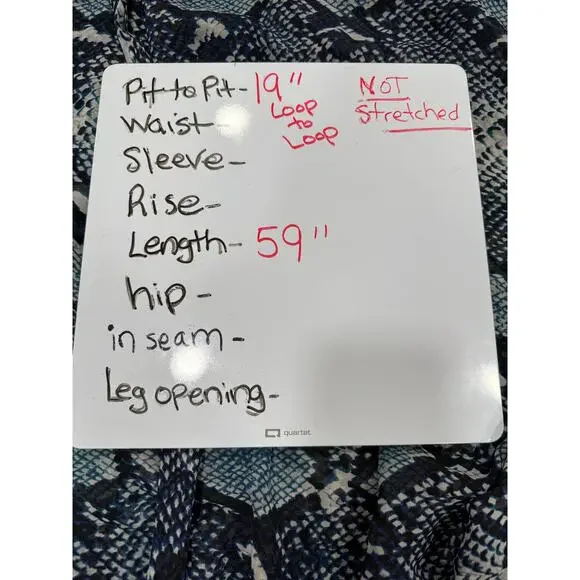 Pit to Pit - 19"
Loop
to
Loop
NOT
Stretched
Waist -
Sleeve -
Rise -
Length - 59"
hip -
in seam -
Leg opening -
quartet